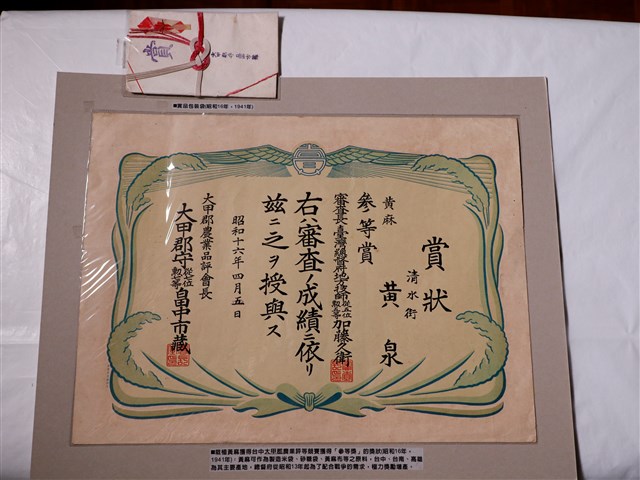 賞
■賞品包裝袋(昭和16年，1941年)
賞狀
清水街
黃泉
黃麻
參等賞
審査長臺灣總督府地方技師從七位勳六等加藤久衛
右ハ審査ノ成績ニ依リ
茲ニ之ヲ授與ス
昭和十六年四月五日
大甲郡農業品評會長
大甲郡守從七位勳七等畠中市藏
■栽植黃麻獲得台中大甲郡農業評等競賽獲得「參等獎」的獎狀(昭和16年，
1941年)，黃麻可作為製造米袋、砂糖袋、黃麻布等之原料，台中、台南、高雄
為其主要產地，總督府從昭和13年起為了配合戰爭的需求，極力獎勵增產。